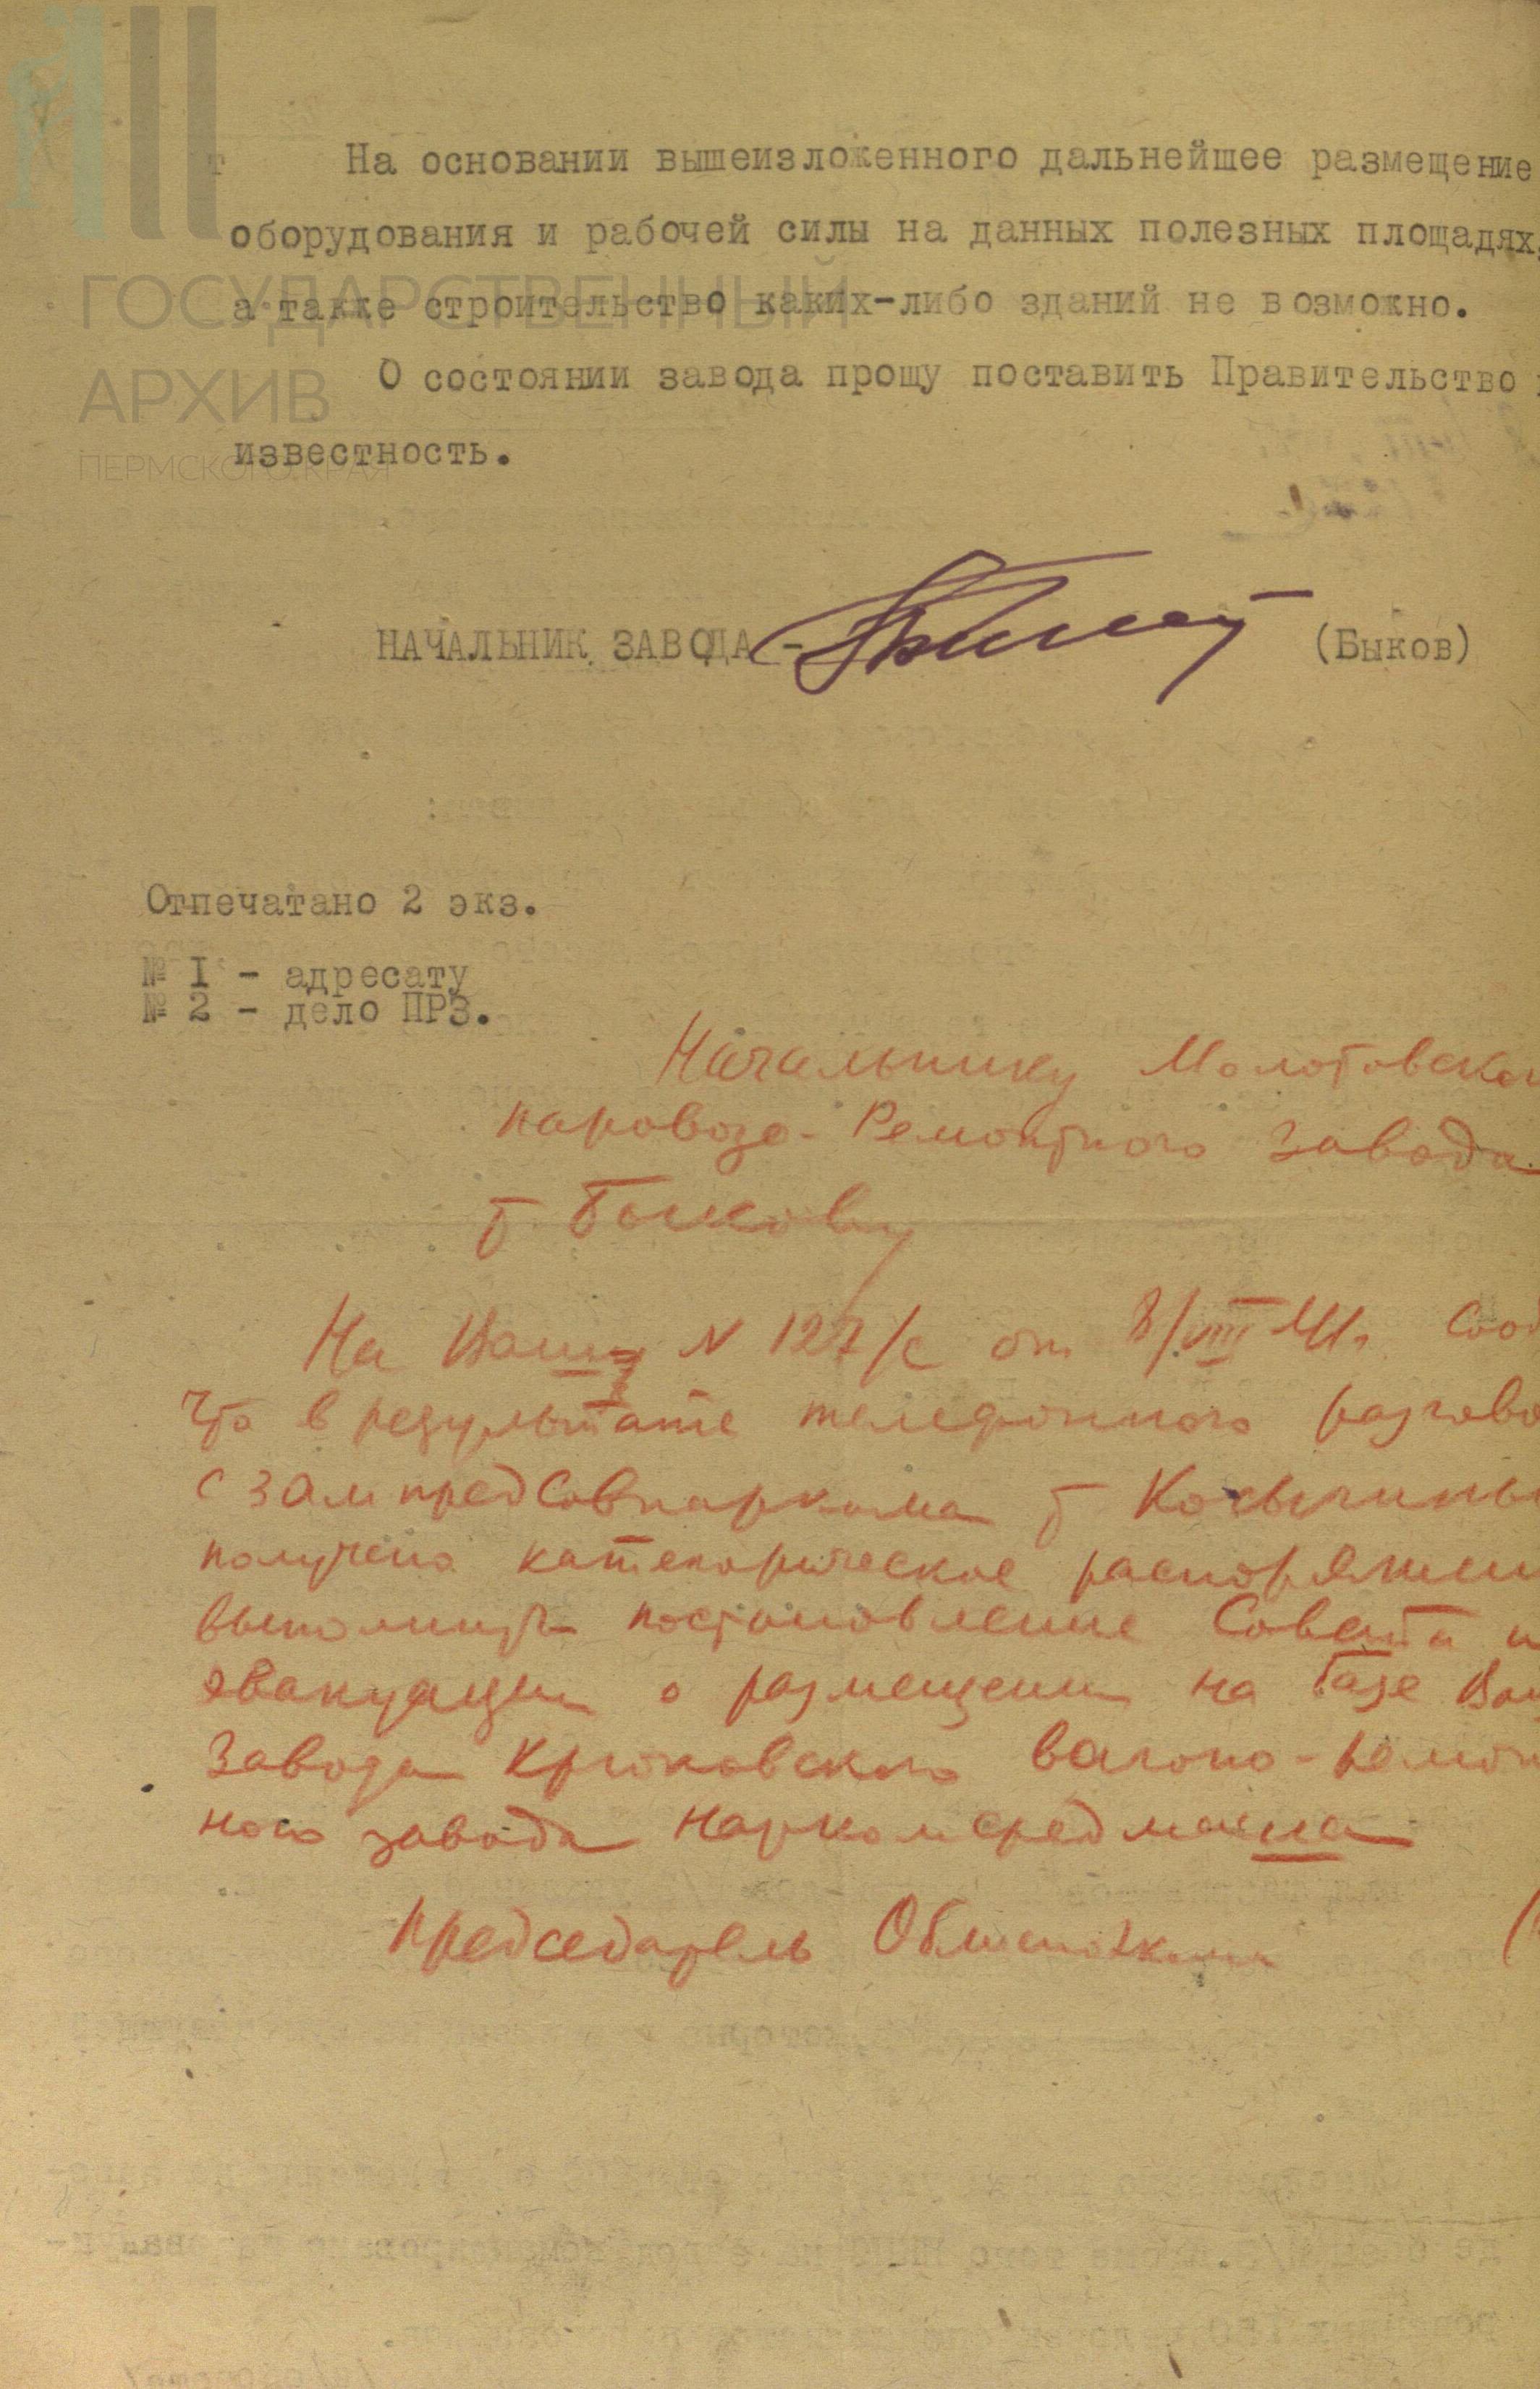 На основании вышеизложенного дальнейшее размещение
оборудования и рабочей силы на данных полезных площадях,
а также строительство каких-либо зданий не возможно.
О состоянии завода прошу поставить Правительство
известность.
НАЧАЛЬНИК ЗАВОДА - (Быков)
Отпечатано 2 экз.
№ I - адресату
№ 2 - дело ПРЗ.
Начальнику Молотовско
паровозо-Ремонтного завода
т Быкову
На Ваш N 127/с от 8/VIII 41г. Соо
что в результате телефонного разгово
с зампредСовнаркома т Косыгины
получено категорическое распоряжени
выполнить постановление Совета
эвакуации о размещении на базе Ваш
завода Крюковского вагоно-ремон
ного завода Наркомсредмаша
председатель Облисполкома
ГОСУДАРСТВЕННЫЙ
АРХИВ
ПЕРМСКОГО КРАЯ